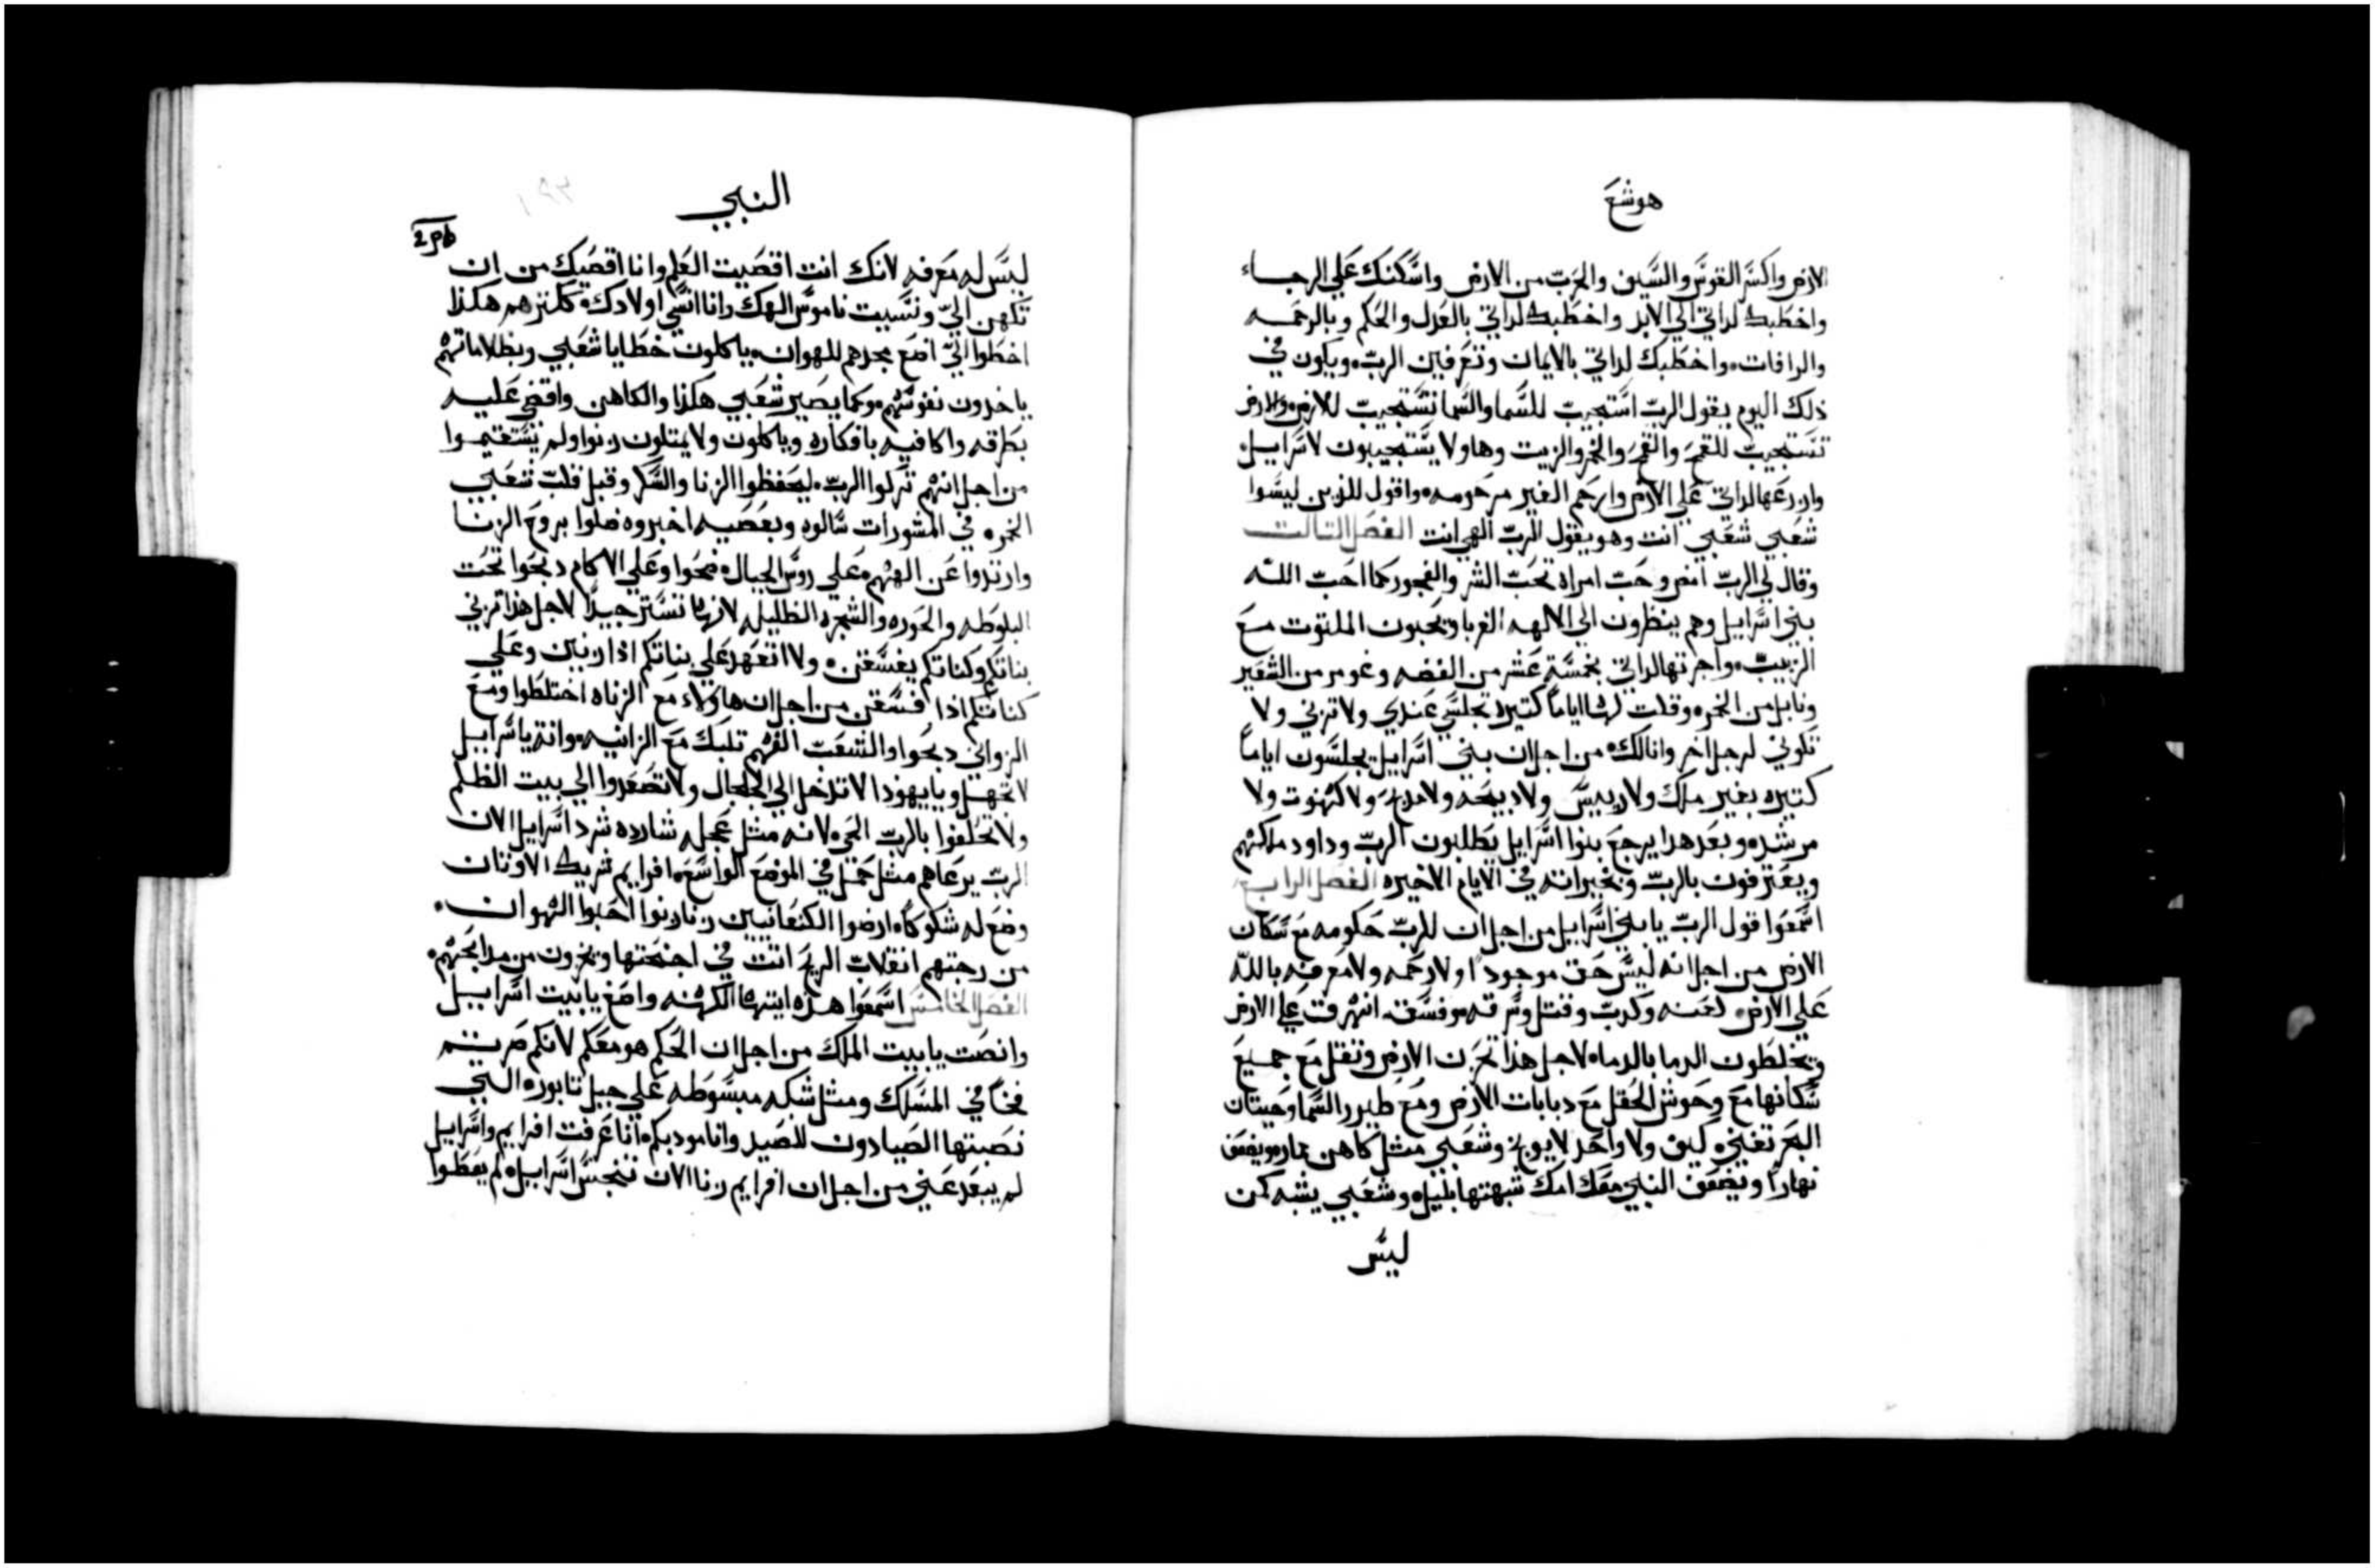 هوشع
الارض واكسر القوس والسيف والحرب من الارض واسكنك علي الرجاء
واخطبك لداتي الي الابد واخطبك لداتي بالعدل والحكم وبالرحمه
والرافات واخطبك لداتي بالايمان وتعرفين الرب ويكون في
ذلك اليوم يقول الرب استجيب للسما والسما تستجيب للارض والارض
تستجيب للقمح والقمح والخمر والزيت وهاولا يستجيبون لاسراييل
وازرعها لداتي علي الارض وارحم الغير مرحومه واقول للذين ليسوا
شعبي شعبي انت وهو يقول الرب الهي انت الفصل التالت
وقال لي الرب امض وحب امراه تحب الشر والفجور كما احب الله
بني اسراييل وهم ينظرون الي الالهه الغربا ويحبون الملتوت مع
الزبيب واجرتها لداتي بخمسة عشر من الفضه وغومر من الشعير
ونابل من الخمر وقلت لها اياما كتيره تجلسي عندي ولا تزني ولا
تكوني لرجل اخر وانا لك من اجل ان بني اسراييل يجلسون اياما
كتيره بغير ملك ولا رييس ولا دبيحه ولا مدبح ولا كهنوت ولا
مرشد وبعد هدا يرجع بنوا اسراييل يطلبون الرب وداود ملكهم
ويعترفون بالرب وبخيراته في الايام الاخيره الفصل الرابع
اسمعوا قول الرب يا بني اسراييل من اجل ان للرب حكومه مع سكان
الارض من اجل انه ليس حق موجودا ولا رحمه ولا معرفه بالله
علي الارض لعنه وكدب وقتل وسرقه وفسق انهرقت علي الارض
ويخلطون الدما بالدما لاجل هذا تحزن الارض وتقل مع جميع
سكانها مع وحوش الحقل مع دبابات الارض ومع طيور السما وحيتان
البحر تفني كيف ولا واحد لا يوبخ وشعبي مثل كاهن يمارو ويضعف
نهارا ويضعف النبي معك امك شبهتها بليل وشعبي يشبه كمن
ليس
النبي
ليس له معرفه لانك انت اقصيت العلم وانا اقصيك من ان
تكهن الي ونسيت ناموس الهك وانا انسي اولادك كثرتهم هكذا
اخطوا الي اضع مجدهم للهوان ياكلون خطايا شعبي وبظلاماتهم
ياخدون نفوسهم وكما يصير شعبي هكذا والكاهن واقضي عليه
بطرقه واكافيه بافكاره وياكلون ولا يمتلون زنوا ولم يستقيموا
من اجل انهم تركوا الرب ليحفظوا الزنا والسكر وقبل قلب شعبي
الخمر في المشورات سالوه وبعصيه اخبروه ضلوا بروح الزنا
وارتدوا عن الههم علي روس الجبال ضحوا وعلي الاكام دبحوا تحت
البلوطه والحوره والشجره الظليله لانها تستر جيدا لاجل هذا تزني
بناتكم وكناتكم يفسقن ولا اتعهد علي بناتكم اذا زنين وعلي
كناتكم اذا فسقن من اجل ان هاولاء مع الزناه اختلطوا ومع
الزواني دبحوا والشعب الفهم تلبك مع الزانيه وانت يا اسراييل
لا تجهل ويا يهودا لا تدخل الي الجلجال ولا تصعدوا الي بيت الظلم
ولا تحلفوا بالرب الحي لانه مثل عجله شارده شرد اسراييل الان
الرب يرعاهم مثل حمل في الموضع الواسع افرايم شريك الاوثان
وضع له شكوكا ارضوا الكنعانيين زنا زنوا احبوا الهوان
من رجتهم انقلاب الريح انت في اجنحتها ويخزون من مدابحهم
الفصل الخامس اسمعوا هذه ايتها الكهنه واصغ يا بيت اسراييل
وانصت يا بيت الملك من اجل ان الحكم هو معكم لانكم صرتم
فخا في المسلك ومثل شبكه مبسوطه علي جبل تابور التي
نصبتها الصيادون للصيد وانا مودبكم انا عرفت افرايم واسراييل
لم يبعد عني من اجل ان افرايم زنا الان تنجس اسراييل لم يعطوا